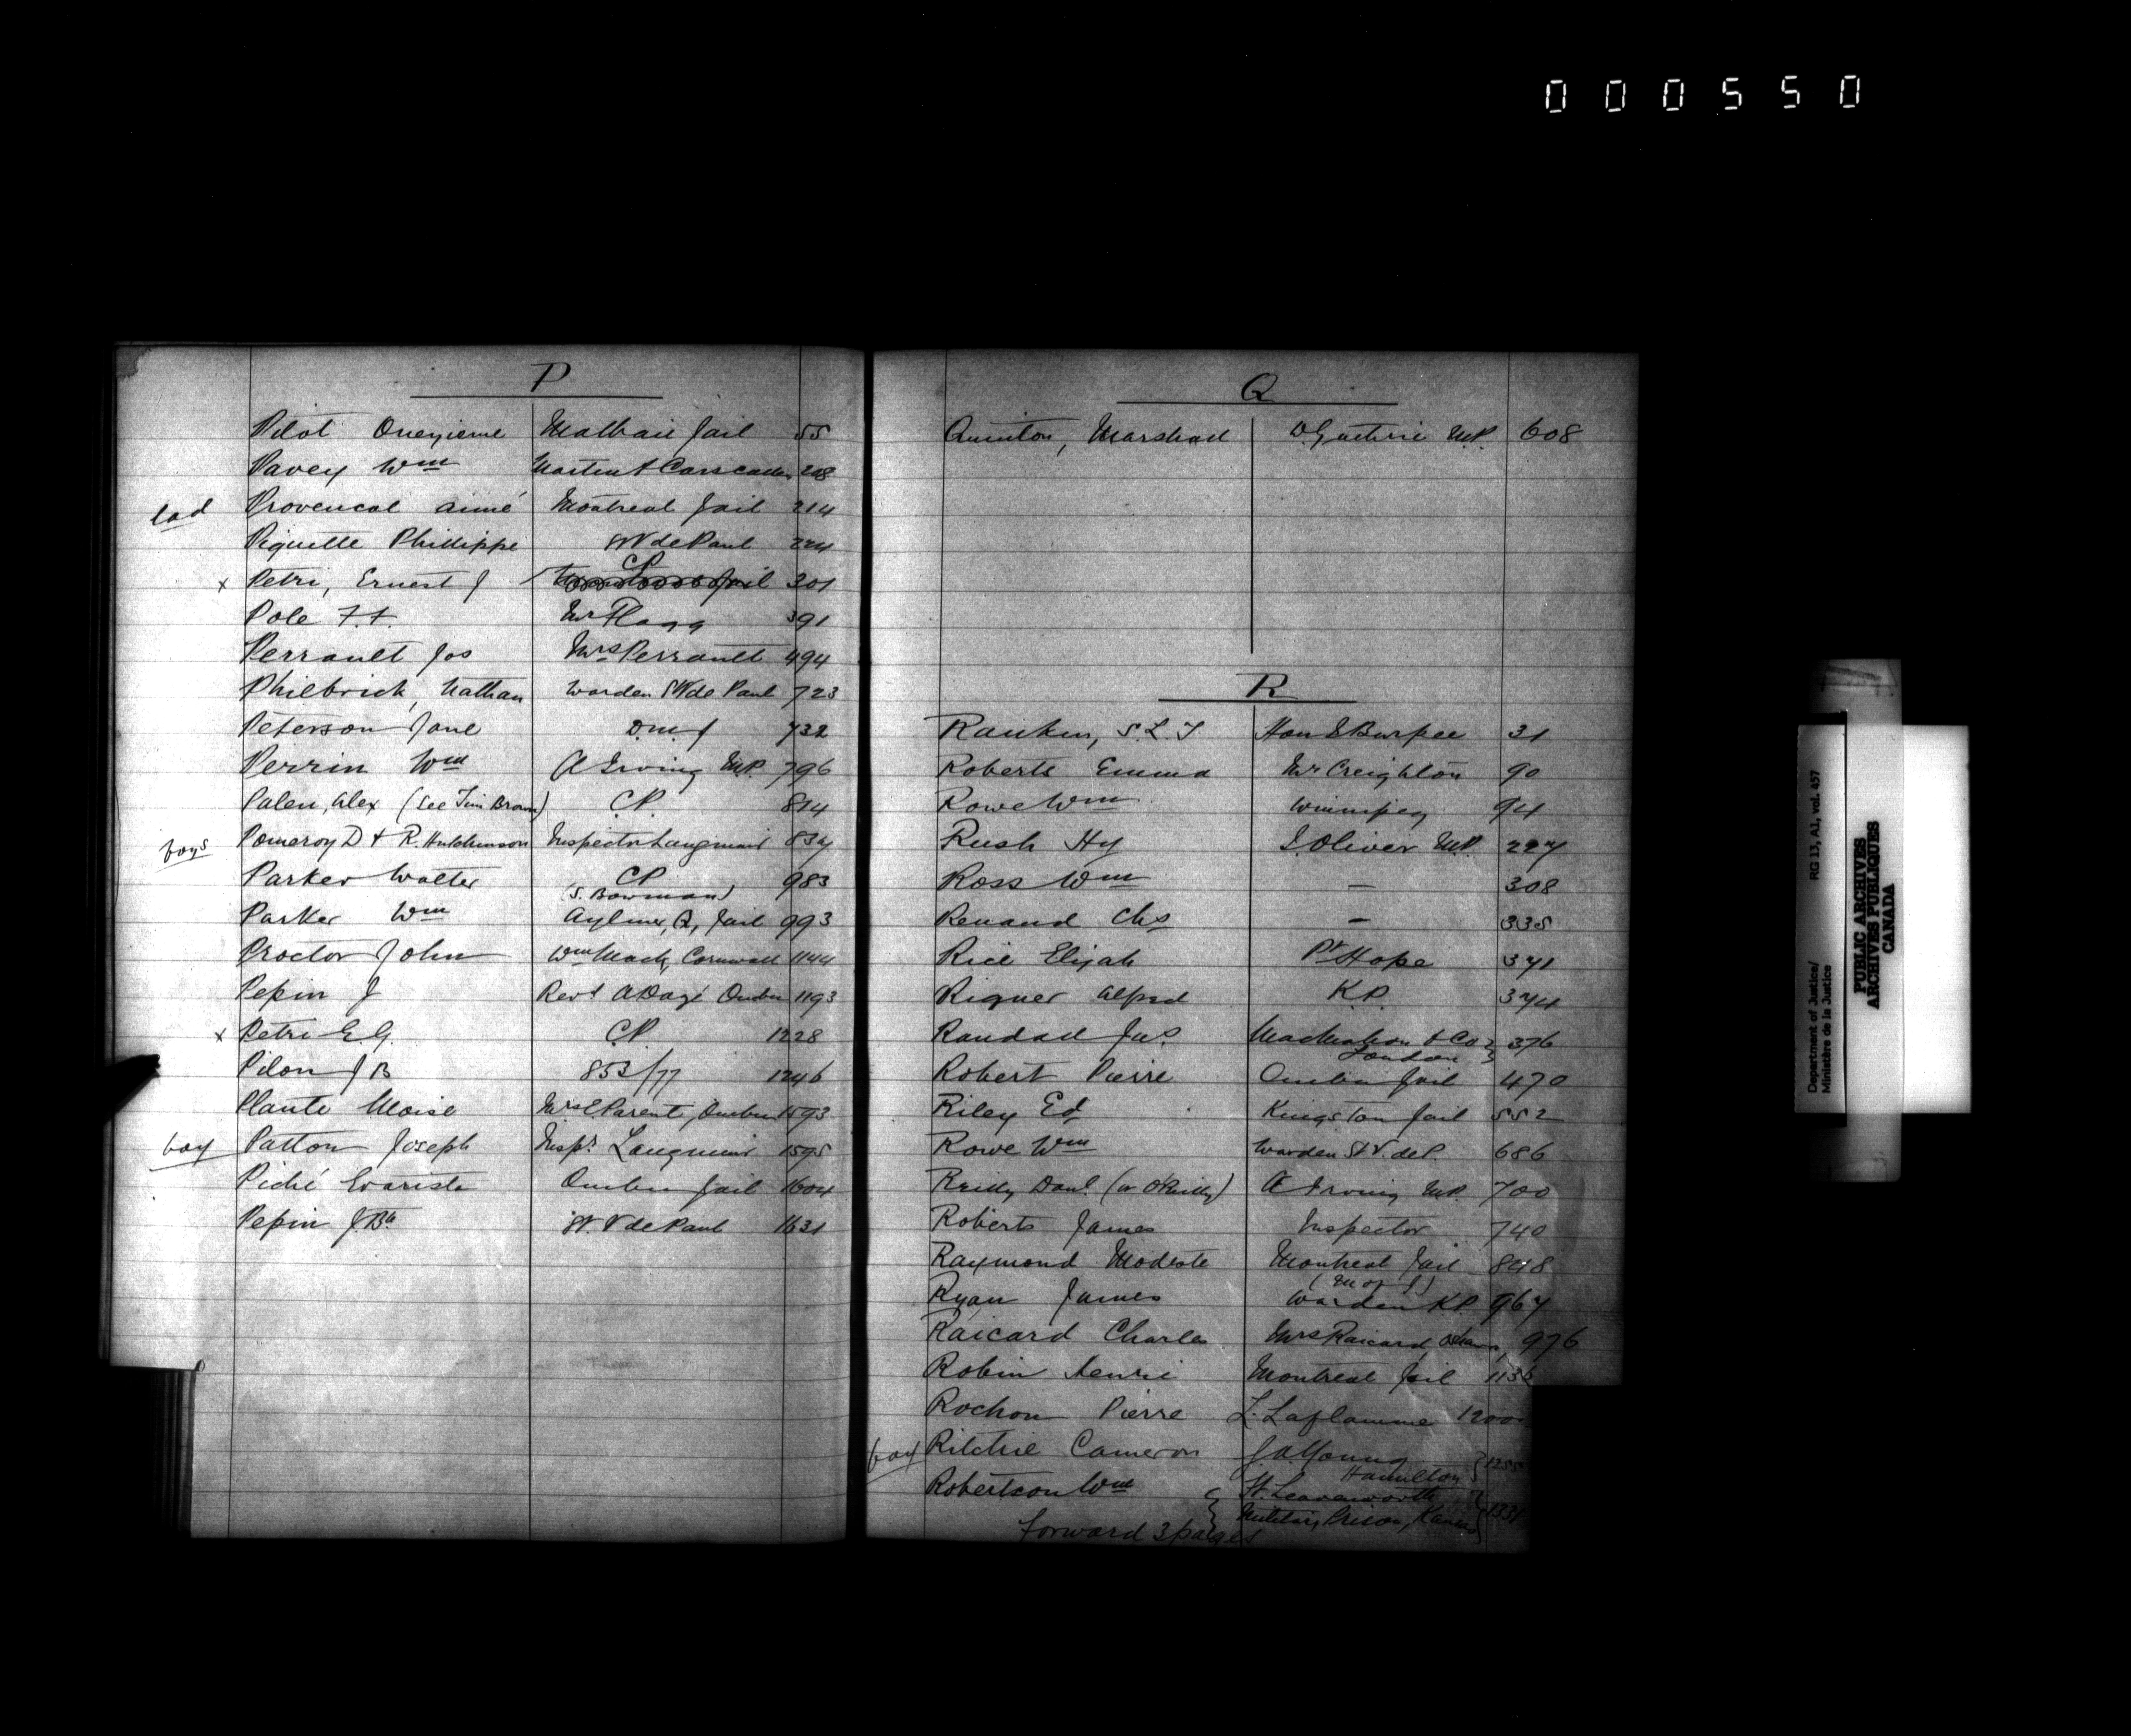 000550
P
Pilot Onezieme Malbaie Jail 55
Pavey Wm Martin & Carscaden 208
lad Provencal Aimé Montreal Jail 214
Piquette Philippe St V de Paul 224
x Petri, Ernest J CP Jail 301
Pole F. F. Mr Flagg 391
Perrault Jos Mrs Perrault 494
Philbrick, Nathan Warden St V de Paul 723
Peterson Jane D M J 732
Perrin Wm A Irving M.P. 796
Palen, Alex (See Tim Brown) C.P. 814
boys Pomeroy D & R. Hutchinson Inspector Langmuir 834
Parker Walter CP 983
(S. Bowman)
Parker Wm Aylmer, Q, Jail 993
Proctor John Wm Mack, Cornwall 1144
Pepin J Revd Quebec 1193
x Petri E G. C.P. 1228
Pilon J B 853/77 1246
Plante Moise Mrs E Parent, Quebec 1593
boy Patton Joseph Inspr Langmuir 1595
Piché Evariste Quebec Jail 1604
Pepin J. Bte St. V de Paul 1631
Q
Quinton, Marshall D. Guthrie M.P. 608
R
Rankin, S. L. T Hon I Burpee 31
Roberts Emma Mr Creighton 90
Rowe Wm Winnipeg 94
Rush Hy T. Oliver M.P. 227
Ross Wm — 308
Renaud Chs — 335
Rice Elijah Pt Hope 371
Riquer Alfred K.P. 374
Randall Jas. MacMahon & Co } 376
London
Robert Pierre Quebec Jail 470
Riley Ed Kingston Jail 552
Rowe Wm Warden St V. de P. 686
Reilly Danl. (or O'Reilly) A Irving M.P. 700
Roberts James Inspector 740
Raymond Modeste Montreal Jail 848
(M of J)
Ryan James Warden KP 967
Raicard Charles Mrs Raicard, Ottawa, 976
Robin Henri Montreal Jail 1136
Rochon Pierre L. Laflamme 1200
boy Ritchie Cameron J A Young } 1255
Hamilton
Robertson Wm { Ft. Leavenworth
Military Prison, Kansas } 1331
forward 3 pages
Department of Justice/
Ministère de la Justice
RG 13, A1, vol. 457
PUBLIC ARCHIVES
ARCHIVES PUBLIQUES
CANADA